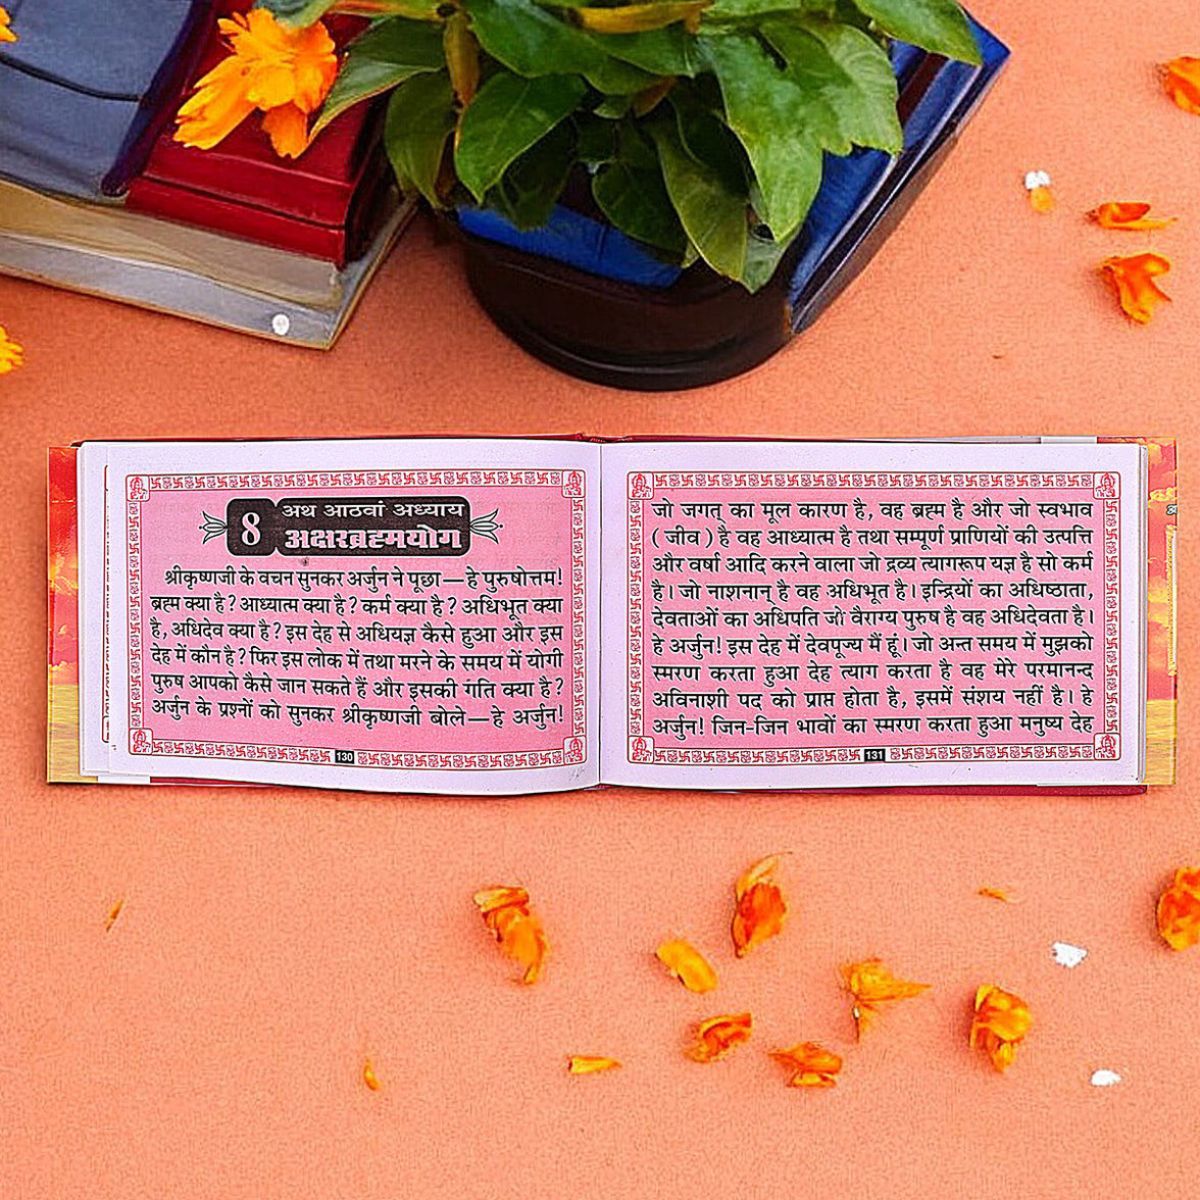 8
अथ आठवां अध्याय
अक्षरब्रह्मयोग
श्रीकृष्णजी के वचन सुनकर अर्जुन ने पूछा—हे पुरुषोत्तम!
ब्रह्म क्या है? आध्यात्म क्या है? कर्म क्या है? अधिभूत क्या
है, अधिदेव क्या है? इस देह से अधियज्ञ कैसे हुआ और इस
देह में कौन है? फिर इस लोक में तथा मरने के समय में योगी
पुरुष आपको कैसे जान सकते हैं और इसकी गति क्या है?
अर्जुन के प्रश्नों को सुनकर श्रीकृष्णजी बोले—हे अर्जुन!
130
जो जगत् का मूल कारण है, वह ब्रह्म है और जो स्वभाव
(जीव) है वह आध्यात्म है तथा सम्पूर्ण प्राणियों की उत्पत्ति
और वर्षा आदि करने वाला जो द्रव्य त्यागरूप यज्ञ है सो कर्म
है। जो नाशनान् है वह अधिभूत है। इन्द्रियों का अधिष्ठाता,
देवताओं का अधिपति जो वैराग्य पुरुष है वह अधिदेवता है।
हे अर्जुन! इस देह में देवपूज्य मैं हूं। जो अन्त समय में मुझको
स्मरण करता हुआ देह त्याग करता है वह मेरे परमानन्द
अविनाशी पद को प्राप्त होता है, इसमें संशय नहीं है। हे
अर्जुन! जिन-जिन भावों का स्मरण करता हुआ मनुष्य देह
131